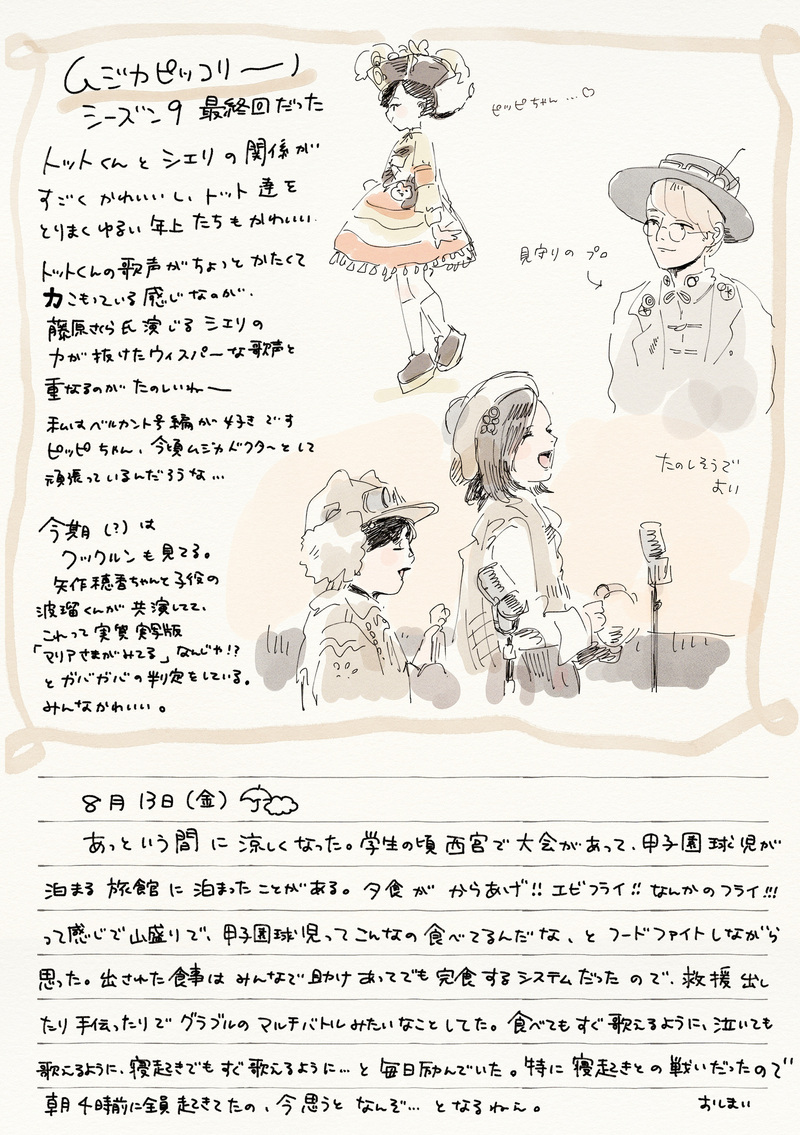 ムジカピッコリーノ
シーズン9 最終回だった
トットくんと シェリの 関係が
すごく かわいいし、トット 達を
とりまく ゆるい 年上 たちも かわいい.
トットくんの歌声がちょっと かたくて
力こもっている 感じ なのが、
藤原さくら氏 演じる シェリの
力が 抜けた ウィスパーな 歌声と
重なるのが たのしいねー
私は ベルカント号 編が 好き です
ピッピちゃん、今頃ムジカドクターとして
頑張っているんだろうな…
今期 (?) は
クックルン も 見てる。
矢作穂香ちゃんと 子役の
波瑠くんが 共演してて、
これって 実質 実写版
「マリアさまがみてる」なんじゃ!?
と ガバガバの 判定をしている。
みんな かわいい 。
ピッピちゃん …♡
見守りの プロ
たのしそうで
よい
8月 13日 (金)
あっという間 に 涼しくなった。学生の頃 西宮で 大会があって、甲子園 球児が
泊まる 旅館 に 泊まった ことがある。夕食 が からあげ!! エビフライ!! なんかのフライ!!!
って感じで 山盛りで、甲子園球児って こんなの 食べてるんだ な、と フードファイト しながら
思った。出された 食事は みんなで 助け あってでも 完食 する システム だった ので、救援 出し
たり 手伝ったりで グラブルの マルチバトル みたい なこと してた。食べても すぐ 歌えるように、泣いても
歌えるように、寝起きでも すぐ 歌えるように… と 毎日励んでいた 。特に 寝起きとの 戦いだったので
朝 4時前に全員 起きてたの 、今 思うと なんぞ… と なるねぇ 。
おしまい